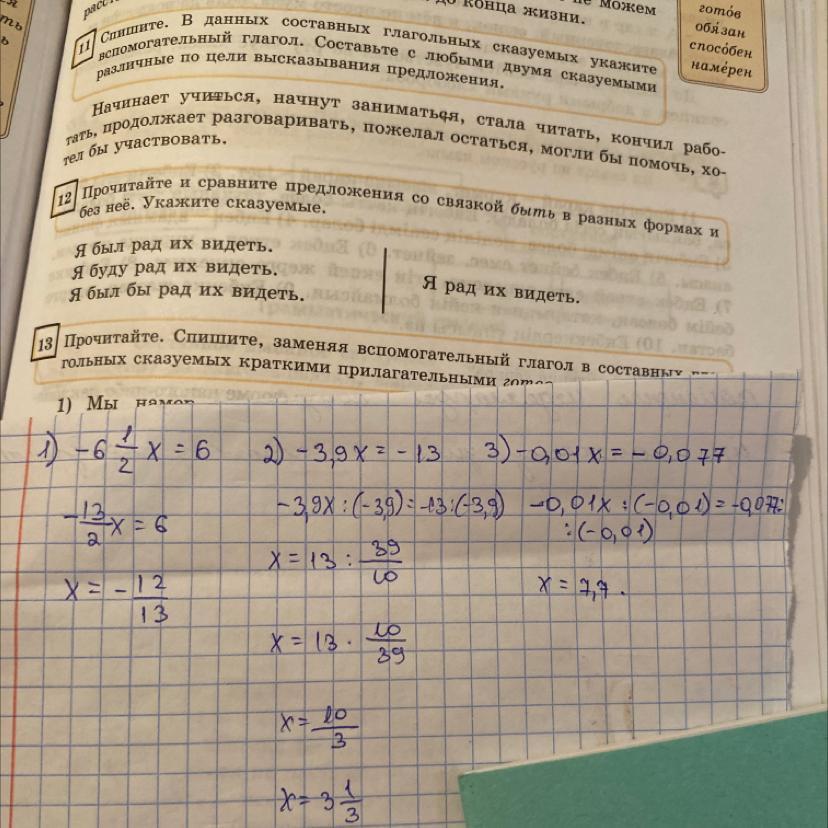 до конца жизни.
не можем
готóв
обя́зан
спосóбен
намéрен
11 Спишите. В данных составных глагольных сказуемых укажите
вспомогательный глагол. Составьте с любыми двумя сказуемыми
различные по цели высказывания предложения.
Начинает учиться, начнут заниматься, стала читать, кончил рабо-
тать, продолжает разговаривать, пожелал остаться, могли бы помочь, хо-
тел бы участвовать.
12 Прочитайте и сравните предложения со связкой быть в разных формах и
без неё. Укажите сказуемые.
Я был рад их видеть.
Я буду рад их видеть.
Я был бы рад их видеть.
Я рад их видеть.
13 Прочитайте. Спишите, заменяя вспомогательный глагол в составных
гольных сказуемых краткими прилагательными
1) Мы
1) -6 1/2 x = 6
-13/2 x = 6
x = - 12/13
2) -3,9x = -13
-3,9x : (-3,9) = -13 : (-3,9)
x = 13 : 39/10
x = 13 · 10/39
x = 10/3
x = 3 1/3
3) -0,01x = -0,077
-0,01x : (-0,01) = -0,077:
:(-0,01)
x = 7,7.